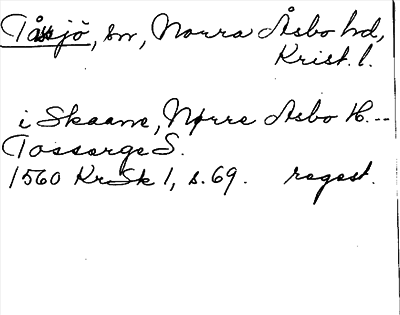 Tåssjö, sn, Norra Åsbo hd,
Krist. l.
i Skaane, Nørre Åsbo H. --
Tossørge S.
1560 KrSk 1, s. 69. regest.